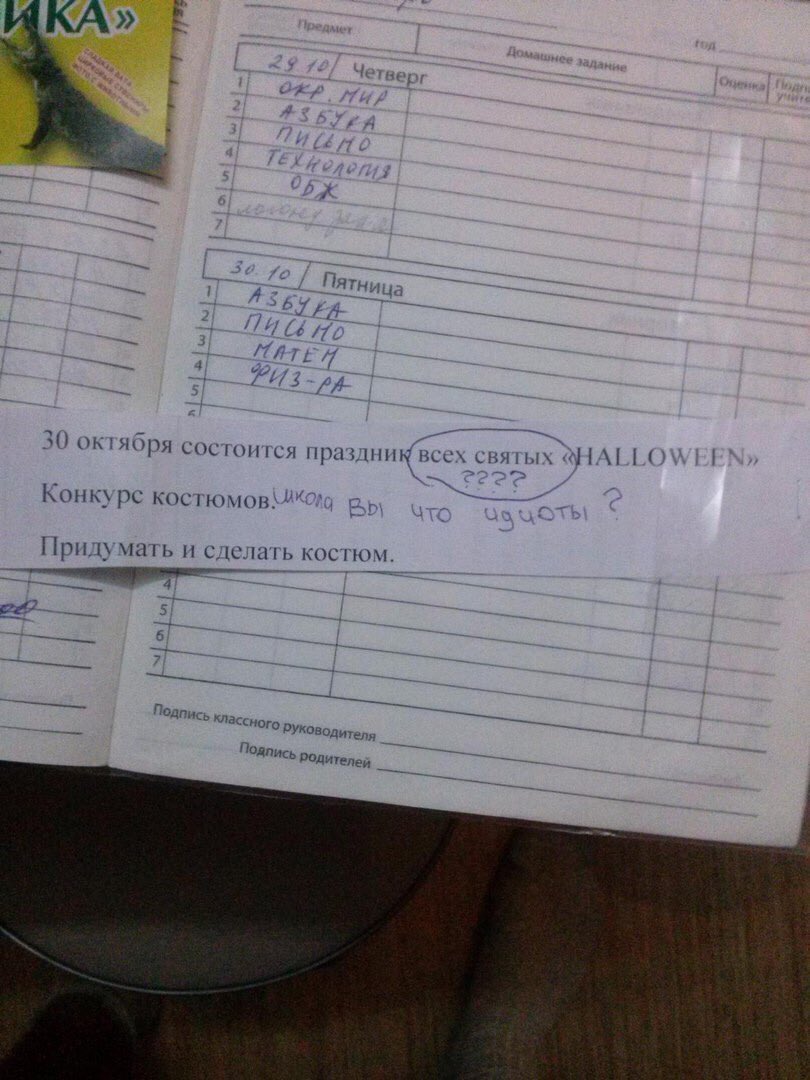 ИКА»
СЛАДКАЯ ВАТА
ЦИРКОВЫЕ СУВЕНИРЫ
ФОТО С ЖИВОТНЫМИ
Предмет
Домашнее задание
год
Оценка
29.10 Четверг
1 ОКР. МИР
2 АЗБУКА
3 ПИСЬМО
4 ТЕХНОЛОГИЯ
5 ОБЖ
6
7
30.10 Пятница
1 АЗБУКА
2 ПИСЬМО
3 МАТЕМ
4 ФИЗ-РА
5
6
30 октября состоится праздник всех святых «HALLOWEEN»
????
Конкурс костюмов. школа вы что идиоты ?
Придумать и сделать костюм.
4
5
6
7
Подпись классного руководителя
Подпись родителей